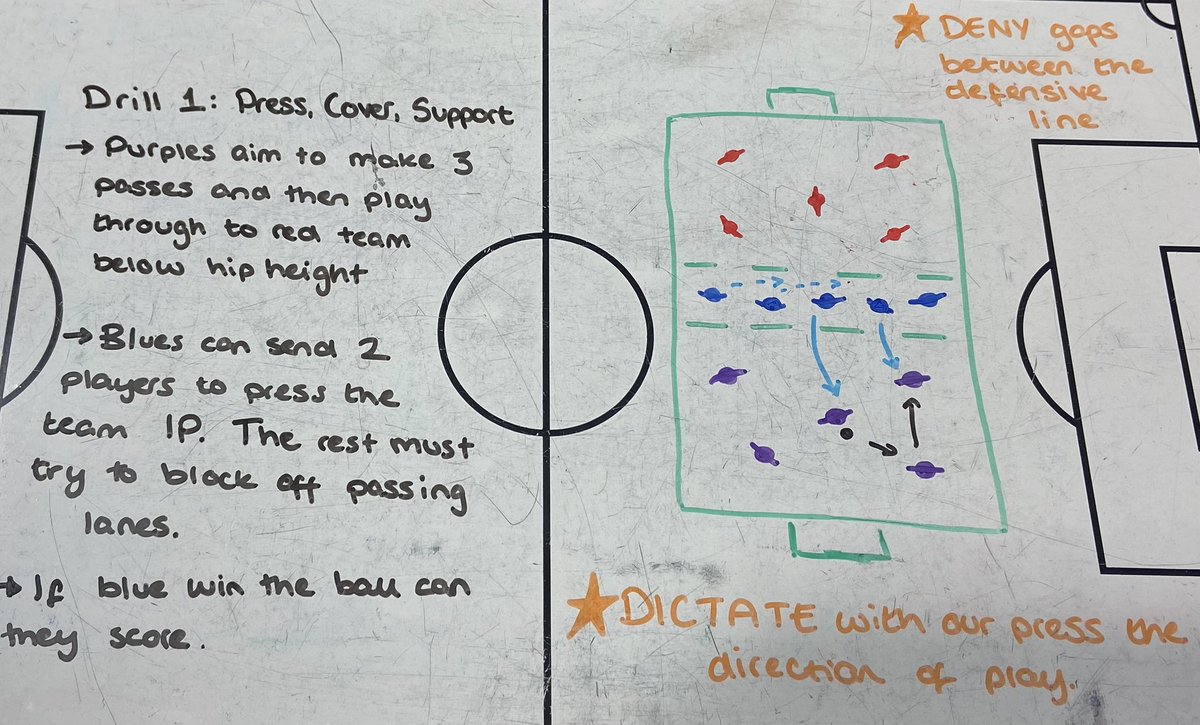 Drill 1: Press, Cover, Support
→ Purples aim to make 3
passes and then play
through to red team
below hip height
→ Blues can send 2
players to press the
team IP. The rest must
try to block off passing
lanes.
→ If blue win the ball can
they score.
★ DENY gaps
between the
defensive
line
★ DICTATE with our press the
direction of play.